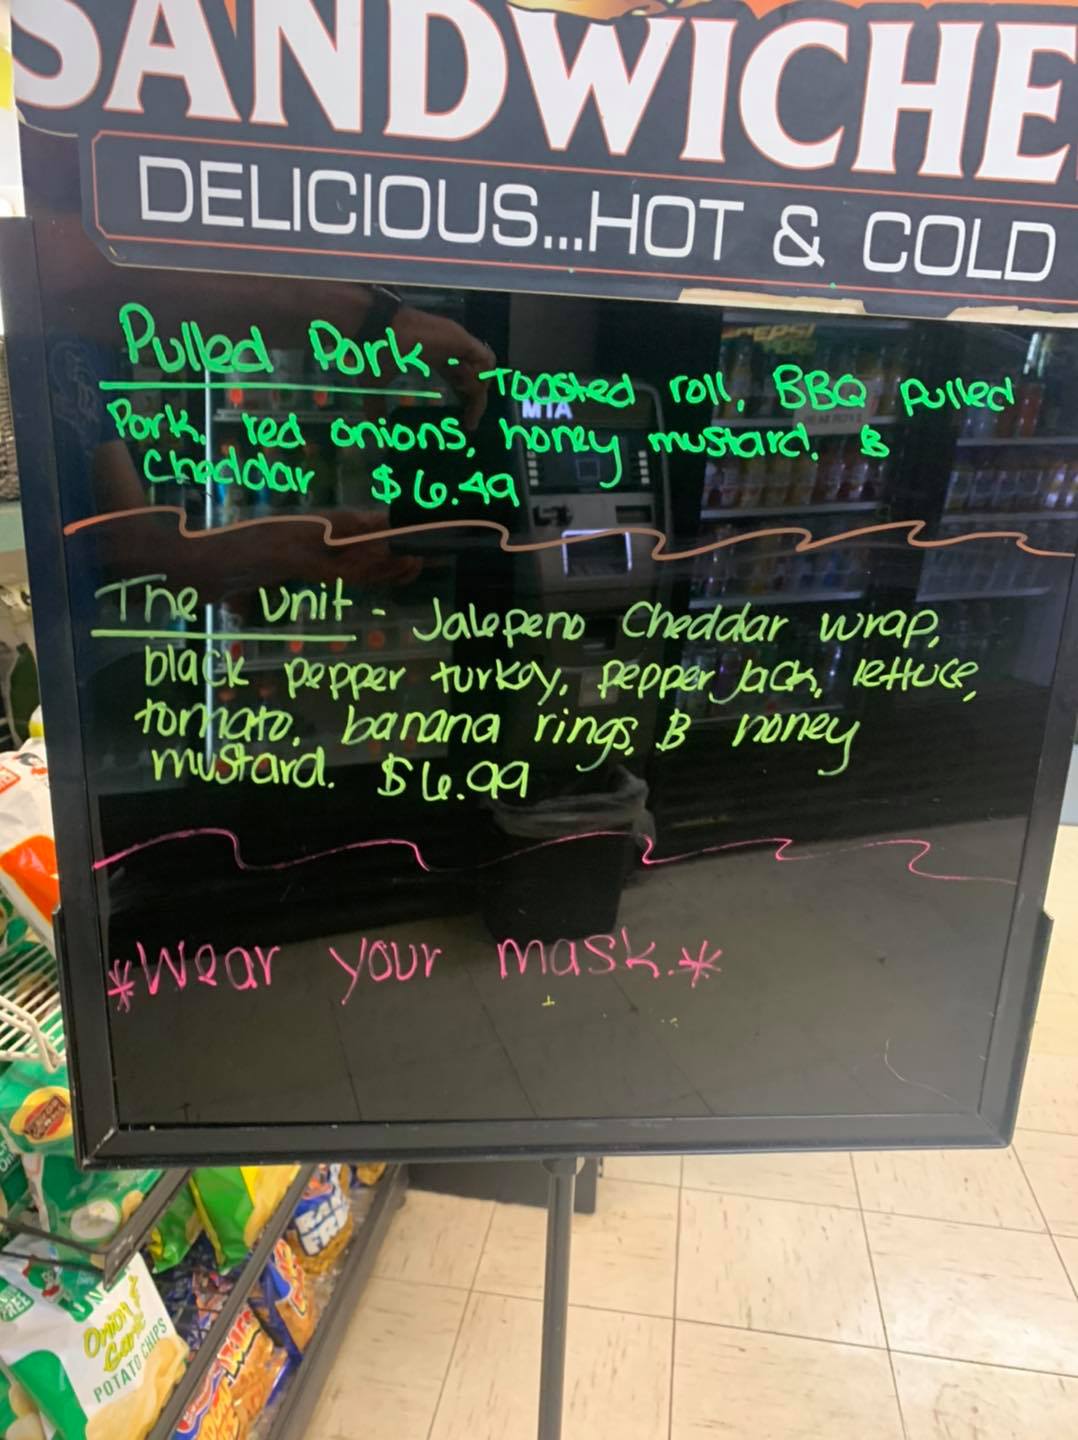 SANDWICHE
DELICIOUS...HOT & COLD
Pulled Pork - Toasted roll, BBQ Pulled
Pork, red onions, honey mustard, &
Cheddar $6.49
The Unit - Jalepeno Cheddar wrap,
black pepper turkey, pepper Jack, lettuce,
tomato, banana rings, & honey
mustard. $6.99
*Wear your mask.*
PEPSI
MTA
Onion &
Garlic
POTATO CHIPS